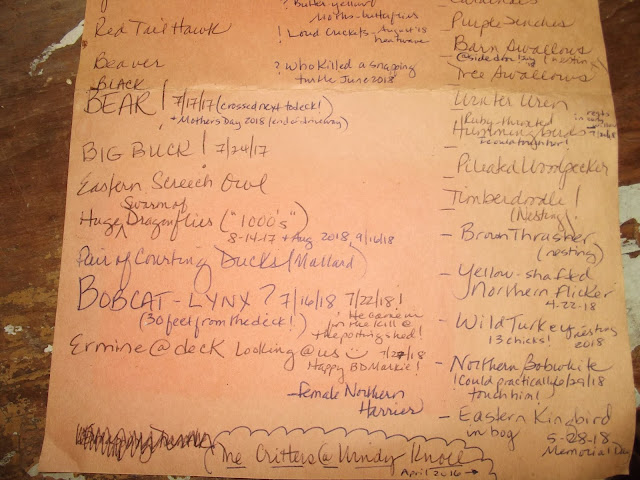 ? Butter yellow
Moths-butterflies
Red Tail Hawk
! Loud Crickets-August '18
heatwave
Beaver
? Who killed a snapping
turtle June 2018
BLACK
BEAR! 7/17/17 (crossed next to deck!)
+ Mothers Day 2018 (end of driveway)
BIG BUCK! 7/24/17
Eastern Screech Owl
Swarm of
Huge Dragonflies ("1000's")
8-14-17 + Aug 2018, 9/16/18
Pair of Courting Ducks (Mallard)
BOBCAT-LYNX? 7/16/18 7/22/18!
(30 feet from the deck!)
He came in
for the kill @
the potting shed!
Ermine @ deck looking @ us
7/27/18
Happy BD Markie!
-female Northern
Harrier
The Critters @ Windy Knoll
April 2016 →
- Purple Finches
- Barn Swallows
(@ side door bay) (nesting)
- Tree Swallows
- Winter Wren
- Ruby-throated
Hummingbirds
- Pileated Woodpecker
- Timberdoodle!
(Nesting)
- Brown Thrasher
(nesting)
- Yellow-shafted
Northern Flicker
4-22-18
- Wild Turkey nesting
13 chicks! 2018
- Northern Bobwhite
! Could practically 6/29/18
touch him!
- Eastern Kingbird
in bog 5-28-18
Memorial Day